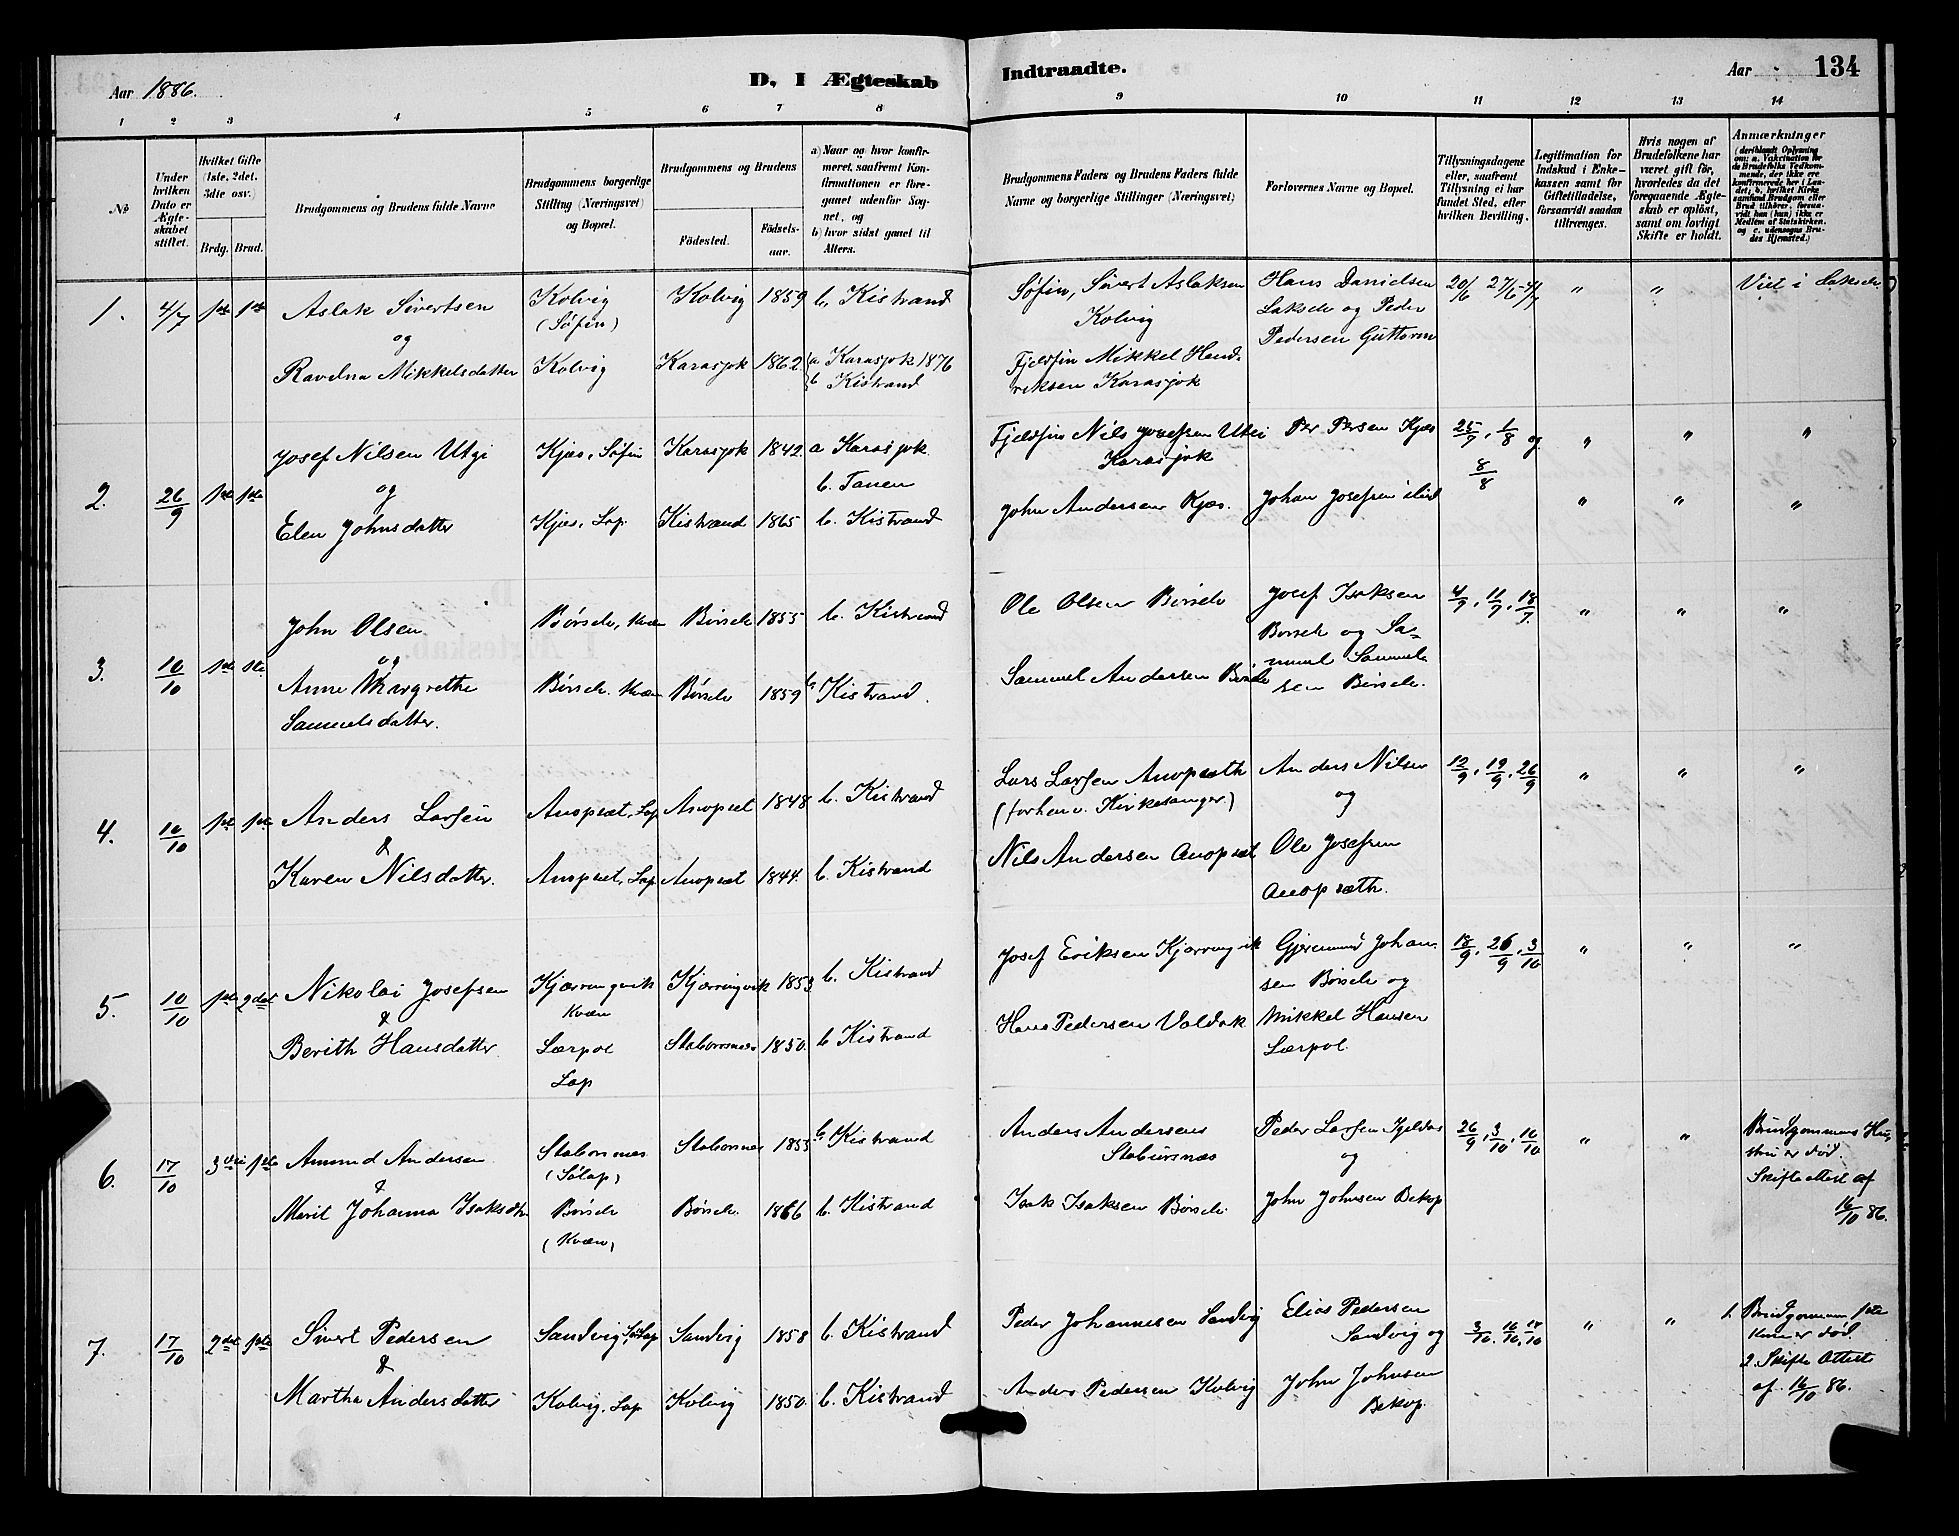 Aar 1886.
D. I Ægteskab
Indtraadte.
Aar
134
1 2 3 4 5 6 7 8 9 10 11 12 13 14
No
Under hvilken Dato er Ægteskabet stiftet.
Hvilket Gifte (1ste, 2det, 3die osv.)
Brdg. Brud.
Brudgommens og Brudens fulde Navne
Brudgommens borgerlige Stilling (Næringsvei) og Bopæl.
Brudgommens og Brudens
Fødested.
Fødselsaar.
a) Naar og hvor konfirmeret, saafremt Konfirmationen er foregaaet udenfor Sognet, og
b) hvor sidst gaaet til Alters.
Brudgommens Faders og Brudens Faders fulde Navne og borgerlige Stillinger (Næringsvei)
Forlovernes Navne og Bopæl.
Tillysningsdagene eller, saafremt Tillysning ei har fundet Sted, efter hvilken Bevilling.
Legitimation for Indskud i Enkekassen samt for Giftetilladelse, forsaavidt saadan tiltrænges.
Hvis nogen af Brudefolkene har været gift før, hvorledes da det foregaaende Ægteskab er opløst, samt om lovligt Skifte er holdt.
Anmærkninger
(deriblandt Oplysning om: a. Vakcination for de Brudefolks Vedkommende, der ikke ere konfirmerede her i Landet; b. hvilket Kirkesamfund Brudgom eller Brud tilhører, forsaavidt han (hun) ikke er Medlem af Statskirken, og c. udensogns Brudes Hjemsted.)
1. 4/7 1ste 1ste Aslak Sivertsen
og
Ravdna Mikkelsdatter
Kolvig
(Søfin)
Kolvig
Kolvig 1859 b. Kistrand
Karasjok 1862 a Karasjok 1876
b Kistrand
Søfin, Sivert Aslaksen
Kolvig
Fjeldfin Mikkel Hendriksen Karasjok
Hans Danielsen
Lakselv og Peder
Pedersen Guttorm
20/6 27/6 4/7 " "
Viet i Lakselv
2. 26/9 1ste 1ste Josef Nilsen Utsi
og
Elen Johnsdatter
Kjæs, Søfin Karasjok 1842 a Karasjok
b. Tanen
Kjæs, Lap. Kistrand 1865 b. Kistrand
Fjeldfin Nils Josefsen Utsi
Karasjok
John Andersen Kjæs.
Per Persen Kjæs
Johan Josefsen ibid
25/7, 1/8 og
8/8
" " "
" " "
3. 10/10 1ste 1ste John Olsen
og
Anne Margrethe
Samuelsdatter.
Børselv, Kvæn Børselv 1855 b. Kistrand
Børselv. Kvæn Børselv 1859 b Kistrand.
Ole Olsen Børselv
Samuel Andersen Børselv
Josef Isaksen
Børselv og Samuel Samuelsen Børselv.
4/7, 11/7, 18/7. " " "
4. 10/10 1ste 1ste Anders Larsen
&
Karen Nilsdatter.
Anopset, Lap Anopset 1848 b. Kistrand
Anopset, Lap Anopset 1844. b. Kistrand
Lars Larsen Anopseth
(forhenv. Kirkesanger)
Nils Andersen Anopset
Anders Nilsen
og
Ole Josefsen
Anopseth.
12/9, 19/9, 26/9 " " "
5. 10/10 1ste 2det Nikolai Josefsen
&
Berith Hansdatter
Kjærringvik
Kvæn
Lærpol
Lap
Kjærringvik 1853 b. Kistrand
Stabursnes 1850. b Kistrand
Josef Eriksen Kjærringvik
Hans Pedersen Valdak
Johansen Børselv og
Mikkel Hansen
Lærpol.
18/9, 26/9, 3/10 " " "
6. 17/10 3die 1ste Amund Andersen
&
Marit Johanna Isaksdtr
Stabursnes
(Sølap)
Børselv
(Kvæn)
Stabursnes 1853 b. Kistrand
Børselv. 1866 b. Kistrand
Anders Andersens
Stabursnæs
Isak Isaksen Børselv.
Peder Larsen
og
John Johnsen Bekop
26/9, 3/10, 10/10 " "
Brudgommens Hustru er død.
Skifteattest af
16/10 86.
7. 17/10 2det 1ste Sivert Pedersen
&
Martha Andersdatter
Sandvig Sølap Sandvig 1858 b. Kistrand
Kolvig, Lap Kolvig 1850. b. Kistrand
Peder Johannesen Sandvig
Anders Pedersen Kolvig
Elias Pedersen
Sandvig og
John Johnsen
Bekop.
3/10. 10/10. 17/10 " "
1. Brudgommens 1ste
Kone er død.
2. Skifte Attest
af 16/10 86.